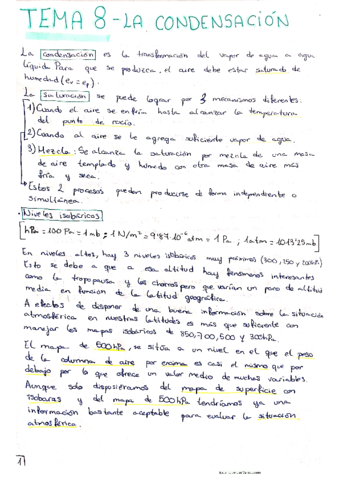 TEMA 8 - LA CONDENSACIÓN
La condensación es la transformación del vapor de agua a agua
líquida. Para que se produzca, el aire debe estar saturado de
humedad
La saturación se puede lograr por 3 mecanismos diferentes:
1) Cuando el aire se enfría hasta alcanzar la temperatura
del punto de rocío.
2) Cuando al aire se le agrega suficiente vapor de agua.
3) Mezcla: Se alcanza la saturación por mezcla de una masa
de aire templado y húmedo con otra masa de aire más
fría y seca.
Estos 2 procesos pueden producirse de forma independiente o
simultánea.
Niveles isobáricos
hPa = 100 Pa = 1 mb ; 1 N/m² = 9'87·10⁻⁶ atm = 1 Pa ; 1 atm = 1013'25 mb
En niveles altos, hay 3 niveles isobáricos muy próximos
Esto se debe a que a esa altitud hay fenómenos interesantes
como la tropopausa y los chorros pero que varían un poco de altitud
media en función de la latitud geográfica.
A efectos de disponer de una buena información sobre la situación
atmosférica en nuestras latitudes es más que suficiente con
manejar los mapas isobáricos de 850, 700, 500 y 300 hPa
El mapa de 500 hPa, se sitúa a un nivel en el que el peso
de la columna de aire por encima es casi el mismo que por
debajo por lo que ofrece un valor medio de muchas variables.
Aunque solo dispusiéramos del mapa de superficie con
isobaras y del mapa de 500 hPa tendríamos ya una
información bastante aceptable para evaluar la situación
atmosférica.